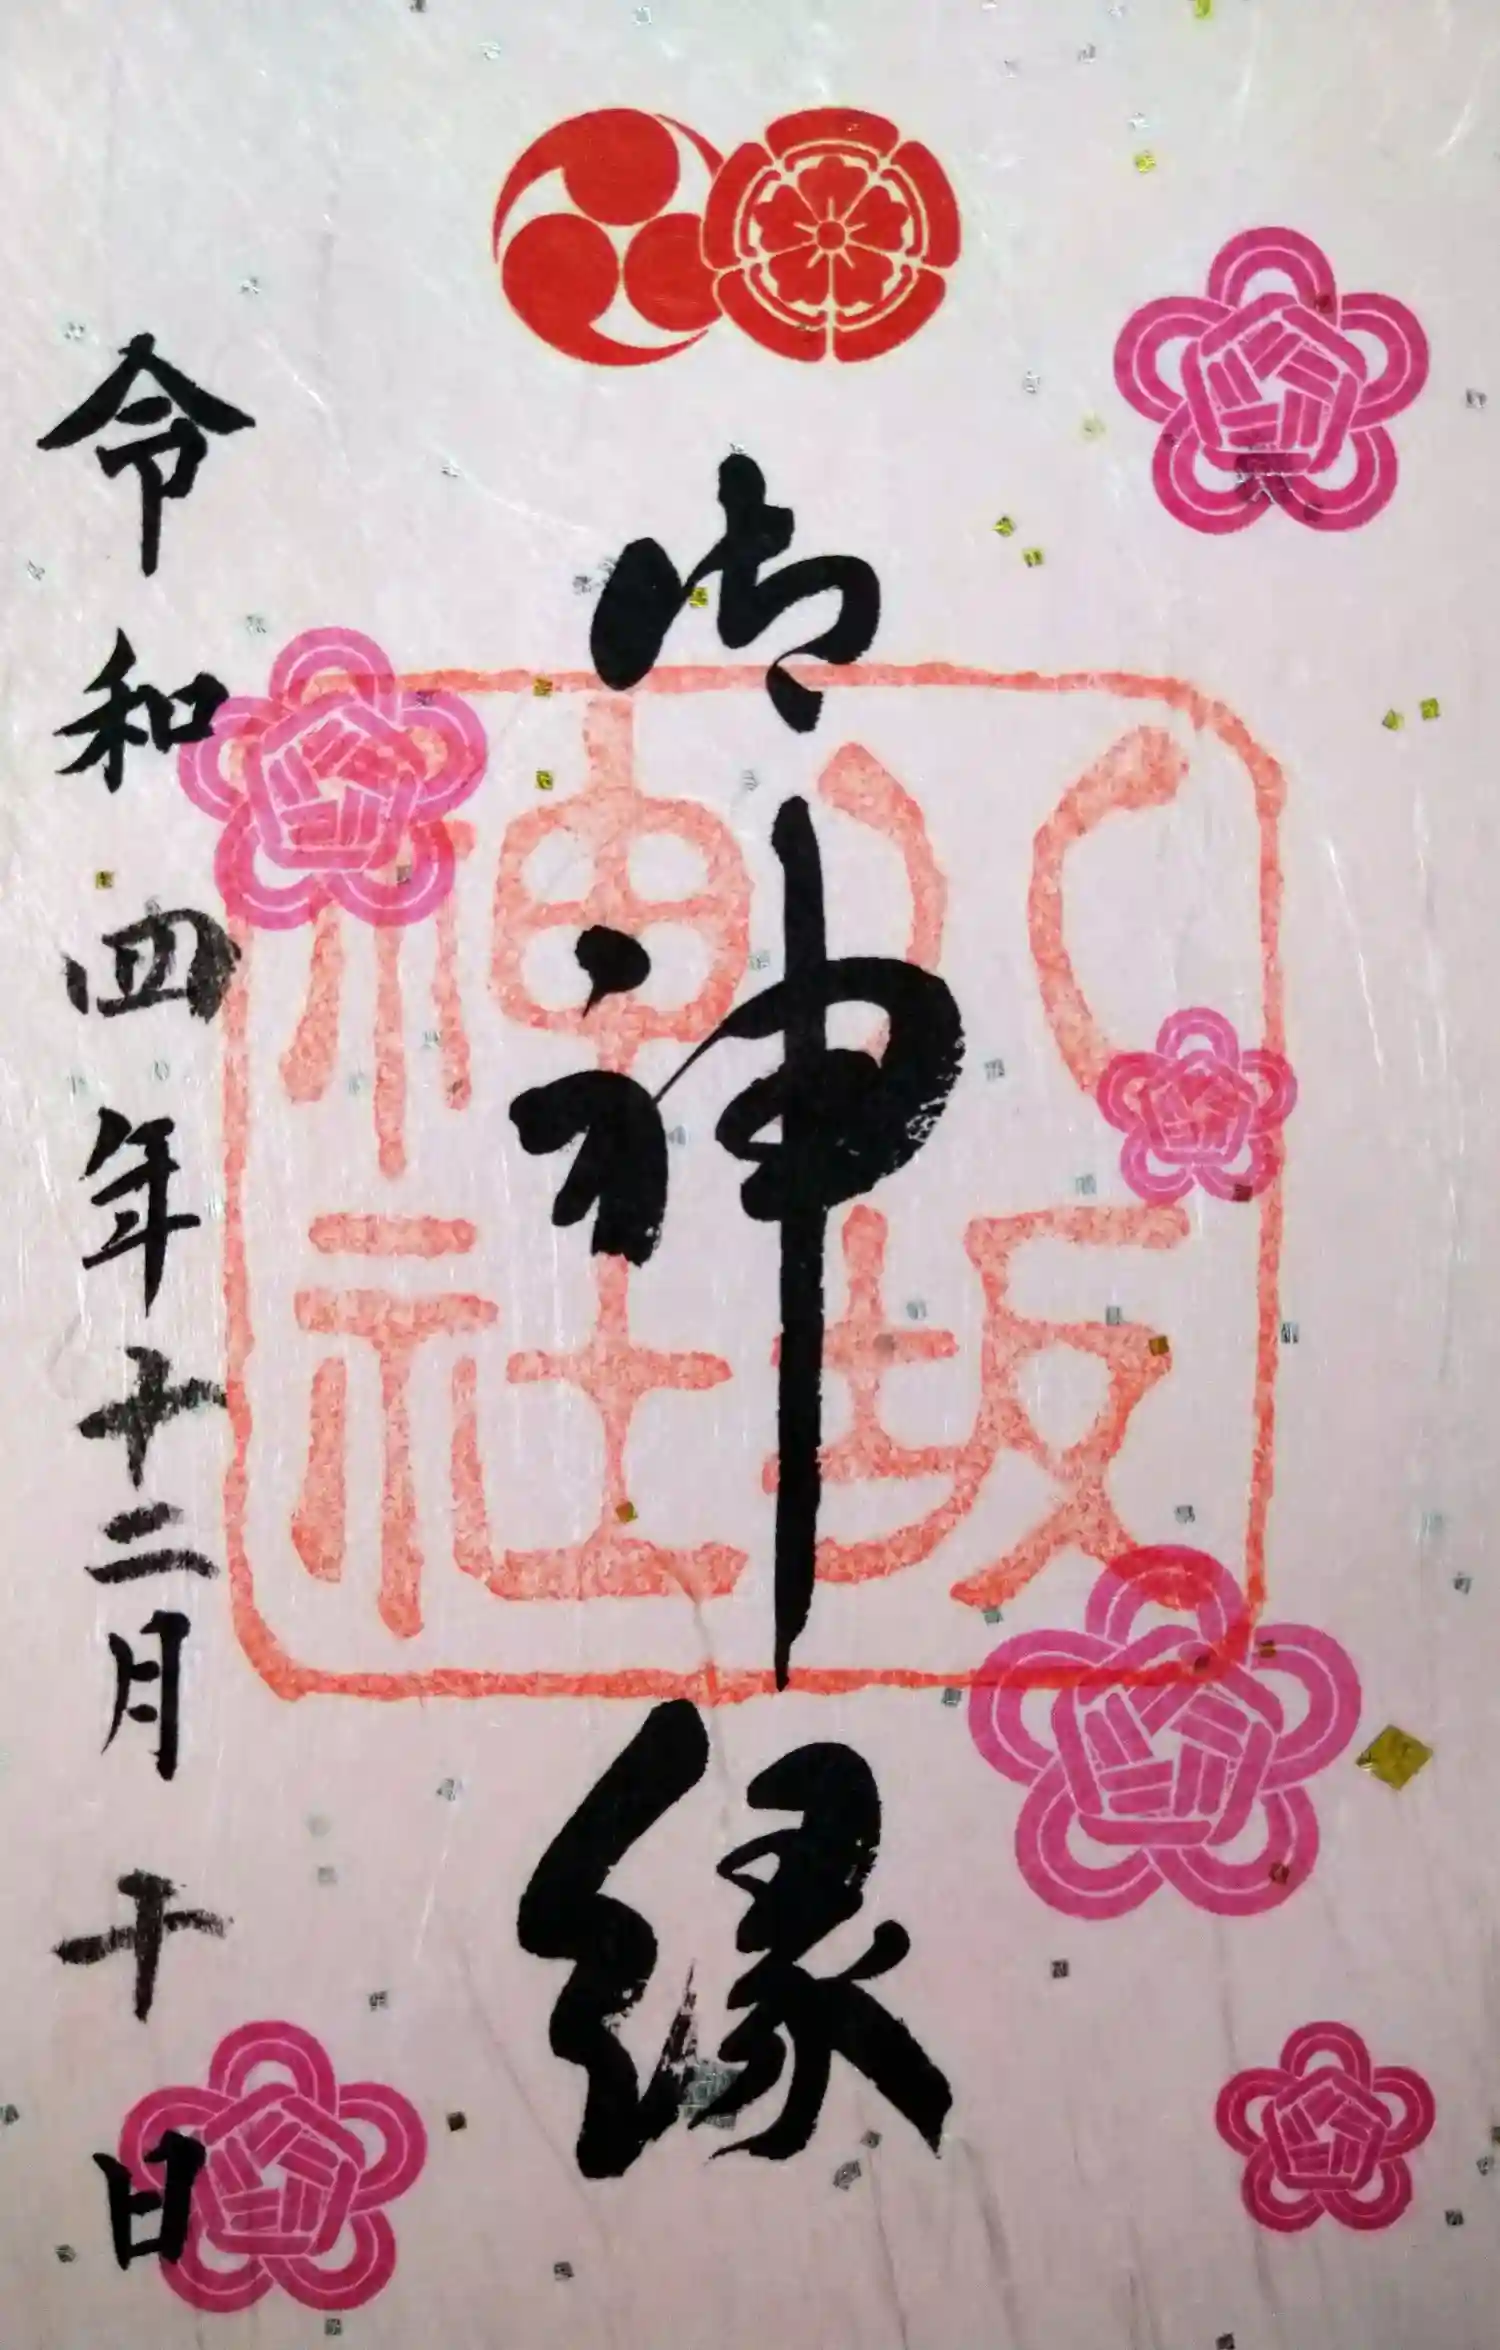 御神縁
八坂
神社
令和四年十二月十日